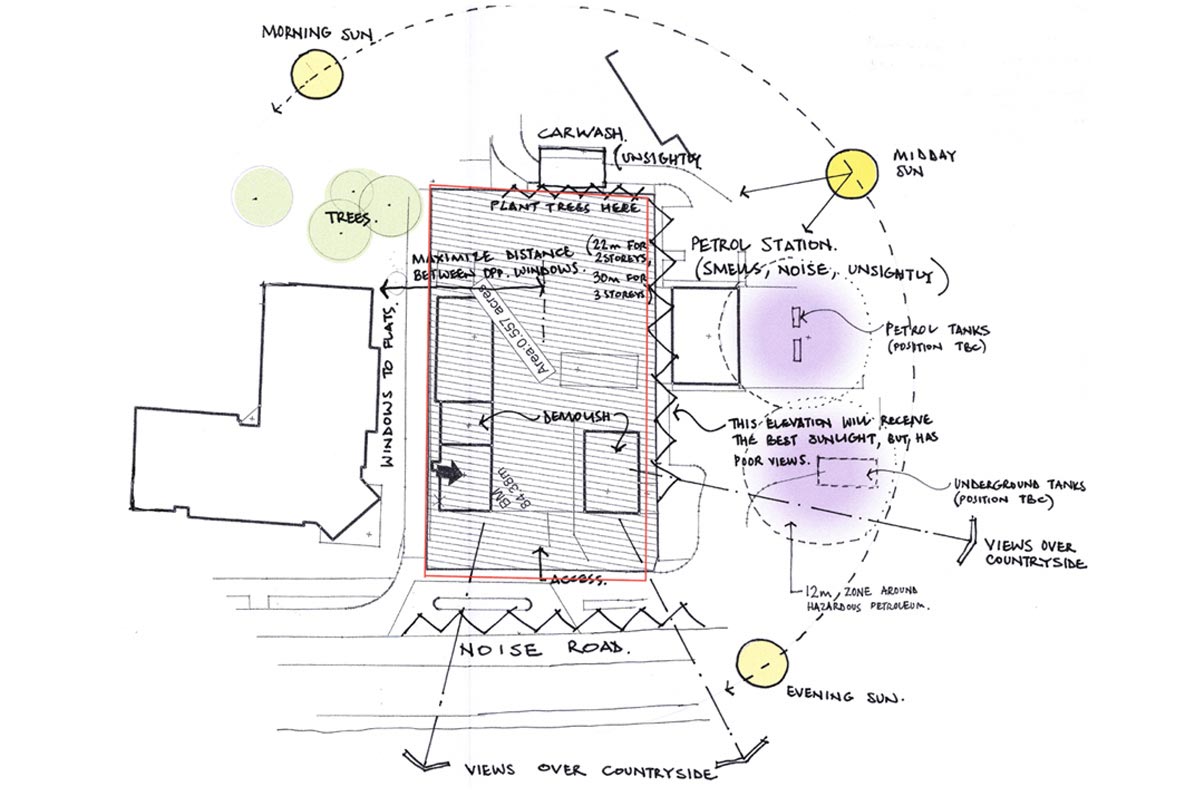 MORNING SUN
CARWASH.
(UNSIGHTLY
MIDDAY
SUN
TREES.
PLANT TREES HERE
MAXIMIZE DISTANCE
BETWEEN OPP. WINDOWS.
(22m FOR
2 STOREYS,
30m FOR
3 STOREYS)
PETROL STATION.
(SMELLS, NOISE, UNSIGHTLY)
Area:0.557 acres
WINDOWS TO FLATS.
PETROL TANKS
(POSITION TBC)
DEMOLISH
THIS ELEVATION WILL RECEIVE
THE BEST SUNLIGHT, BUT HAS
POOR VIEWS.
BM
84.38m
UNDERGROUND TANKS
(POSITION TBC)
VIEWS OVER
COUNTRYSIDE
ACCESS.
12m ZONE AROUND
HAZARDOUS PETROLEUM.
NOISE ROAD.
EVENING SUN.
VIEWS OVER COUNTRYSIDE